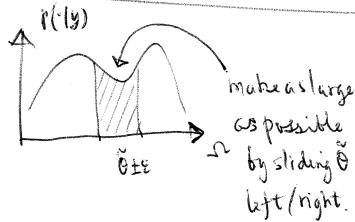 p(·|y)
make as large
as possible
Ω by sliding θ̃
θ̃ ± ε
left/right.